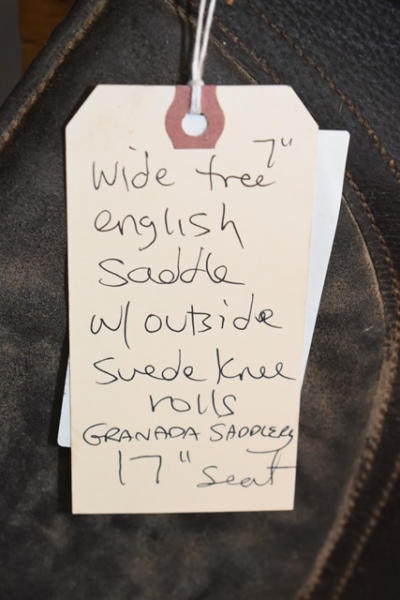 7"
wide tree
english
saddle
w/ outside
suede knee
rolls
GRANADA SADDLERY
17" seat